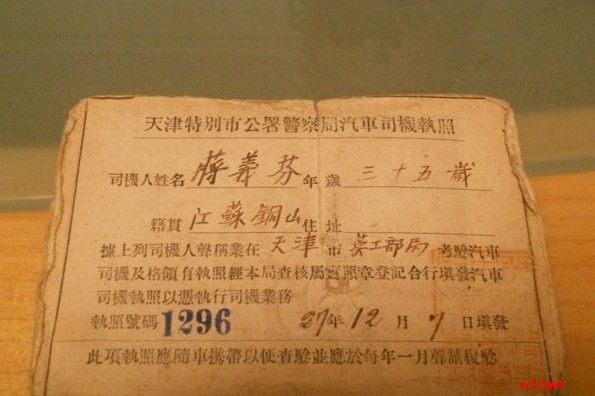 天津特別市公署警察局汽車司機執照
司機人姓名 蔣義芬 年歲 三十五歲
籍貫 江蘇銅山 住址
據上列司機人聲稱業在 天津 市 英工部局 考驗汽車
司機及格領有執照經本局查核屬實照章登記合行填發汽車
司機執照以憑執行司機業務
執照號碼 1296 27年 12 月 7 日填發
此項執照應隨車攜帶以便查驗並應於每年一月聲請復驗